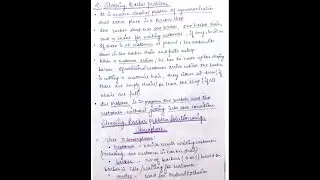 Sleeping Barber Problem
It is another classical problem of synchronization
that takes place in a Barber shop
The barber shop has one barber, one barber chair,
and n chairs for waiting customers, if any, to sit on
If there is no customer at present, the barber sits
down in the barber chair and falls asleep
When a customer arrives, he has to wake up the sleeping
barber. If additional customers arrive while the barber
is cutting a customer's hair, they either sit down (if
there are empty chairs) or leave the shop (if all
chairs are full)
The problem is to program the barber and the
customers without getting into race conditions
Sleeping Barber problem Solution using
Semaphore
Uses 3 Semaphores
customers → which counts waiting customers
(excluding the customer in barber chair)
barbers → no. of barbers (0 or 1) based on
barber is idle / waiting for customer
mutex → used for mutual exclusion